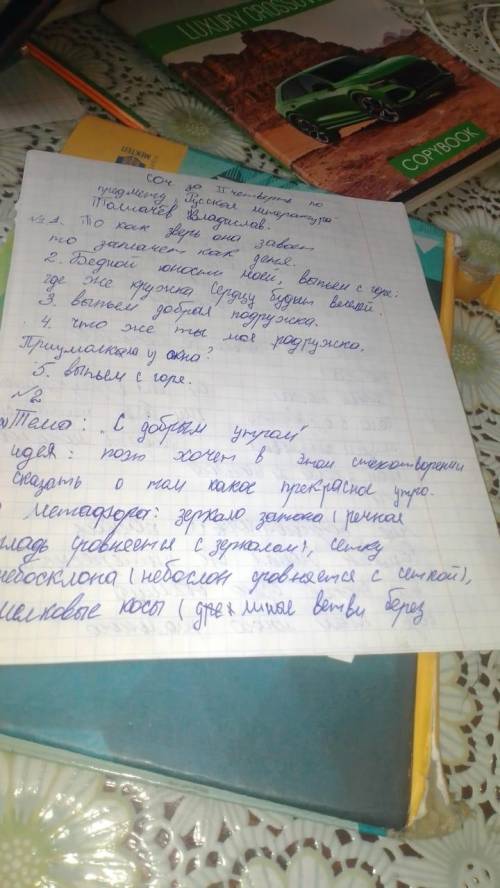 LUXURY CROSSOV
COPYBOOK
МЕКТЕП
соч за II четверть по
предмету Русская литература.
Толмачёв Владислав.
№ 1. То как зверь она завоет
то заплачет как детя.
2. Бедной юности моей, выпьем с горя:
где же кружка Сердцу будит веселей.
3. выпьем добрая подружка.
4. что же ты моя подружка.
Приумолкала у окна?
5. выпьем с горя.
№2
Тема: "С добрым утром"
идея: поэт хочет в этом стихотворении
сказать о том какое прекрасное утро.
метафоры: зеркало затона (речная
гладь уровнеется с зеркалом), сетку
небосклона (небослон уровняется с сеткой),
шелковые косы ( длинные ветви берез